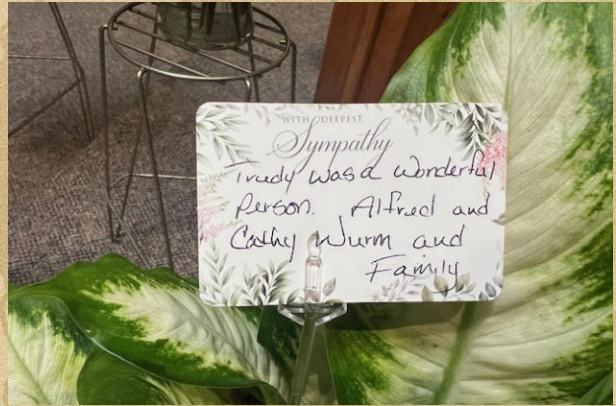 WITH DEEPEST
Sympathy
Trudy was a wonderful
Person. Alfred and
Cathy Wurm and
Family